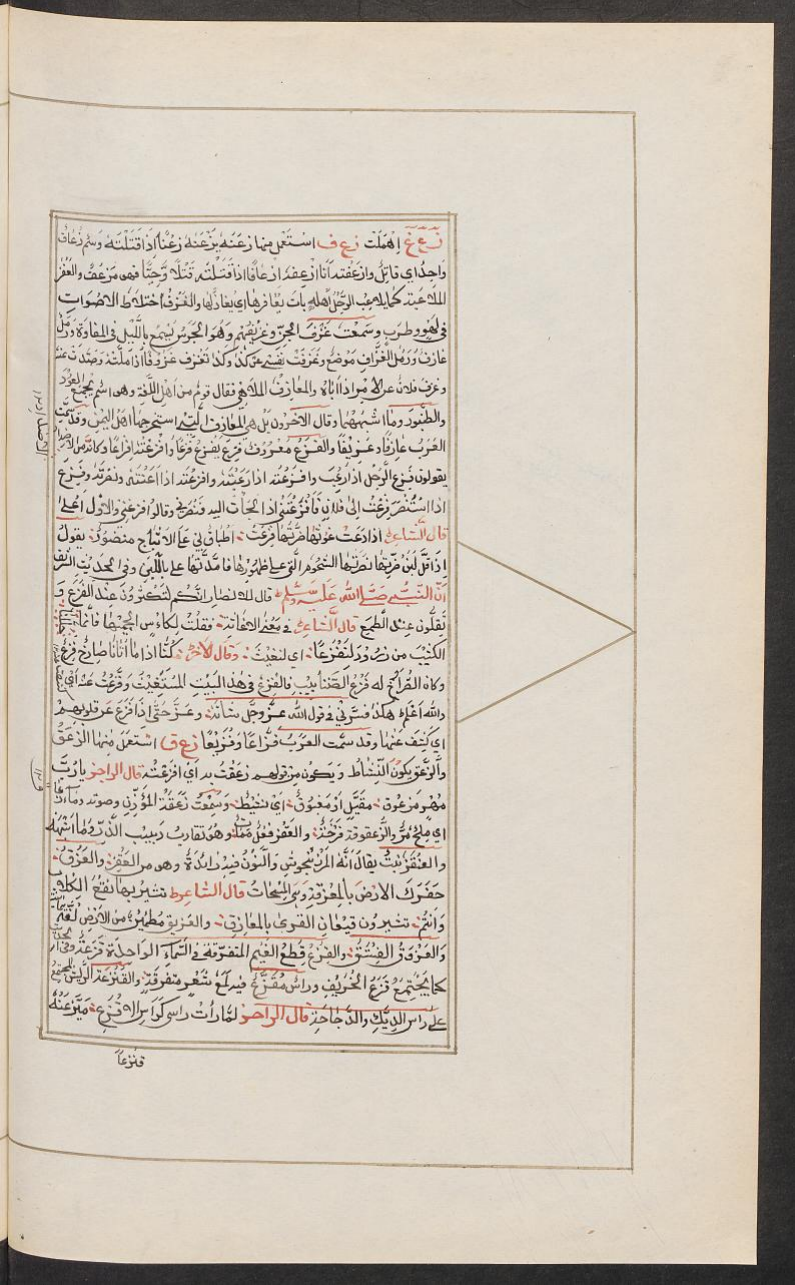 زع غ اهملت زع ف استعمل منها زعفه يزعفه زعفا اذا قتلته وسم زعاف
واحد اي قاتل وازعفته انا ازعفه ازعافا اذا قتلته قتلا وحيا فهو مزعف والعفز
الملاعبة كما يلاعب الرجل اهله بات يعافزها اي يغازلها والعزف اختلاط الاصوات
في لهو وطرب وسمعت عزف الجن وعزيفهم وهو الجرس يسمع بالليل في المفاوز ورمل
عازف ورمل العزاف موضع وعزفت نفسي عن كذا وكذا تعزف عزوفا اذا ملته وصدت عنه
وعزف فلان عن الامر اذا اباه والمعازف الملاهي فقال قوم من اهل اللغة وهو اسم يجمع العود
والطنبور وما اشبههما وقال الاخرون بل هي المعازف التي استخرجها اهل اليمن وقد سمت
العرب عازفا وعزيفا والفزع معروف فزع يفزع فزعا وافزعته افزاعا وكانه من الاضداد
يقولون فزع الرجل اذا رعب وافزعته اذا رعبته وافزعته اذا اعنته ونصرته وفزع
اذا استنصر فزعت الى فلان فافزعني اذا لجأت اليه فنصرني وقالوا افزعني والاول اعلى
قال الشاعر اذا دعت غوثها ضراتها فزعت اطباق ني على الاثباج منضود يقول
اذا قل لبن ضراتها نصرتها الشحوم التي على ظهورها فامدتها باللبن وفي الحديث الشريف
ان النبي صلى الله عليه وسلم قال للانصار انكم لتكثرون عند الفزع و
تقلون عند الطمع قال الشاعر في معنى الاغاثة فقلت لكاس الجميها فانما
الكثيب من زرود لنفزعا اي لنغيث وقال الاخر كنا اذا ما اتانا صارخ فزع
وكان الصراخ له قرع الظنابيب فالفزع في هذا البيت المستغيث وفزعت عنه اي
والله اعلم هكذا فسر لي في قول الله عز وجل شانه وعز حتى اذا فزع عن قلوبهم
اي كشف عنها وقد سمت العرب فزاعا وفزيعا زع ق استعمل منها الزعق
والزعق يكون النشاط ويكون من قولهم زعقت به اي افزعته قال الراجز يا رب
مهر مزعوق مقيل او مغبوق اي نشيط وسمعت زعقة المؤذن وصوته وماء زعاق
اي ملح مر والزعقوقة فرخ والعقز فعل ممات وهو تقارب دبيب الذر وما اشبهه
والعنقز نبت يقال انه المرزنجوش والنون فيه زائدة وهو من العقز والعزق
حفرك الارض بالمعزقة وهي المسحاة قال الشاعر نثير بها نقع الكلاب
وانتم تثيرون قيعان القرى بالمعازق والعزيق مطمئن من الارض لغة يمانية
والعزوق الفستق والقزع قطع الغيم المتفرقة في السماء الواحدة قزعة وفي الحديث
كما يجتمع قزع الخريف وراس مقزع فيه لمع شعر متفرقة والقنزعة الريش المجتمع
على راس الديك والدجاجة قال الراجز لما رات راسي كراس الاقزع ميز عنه
قنزعا